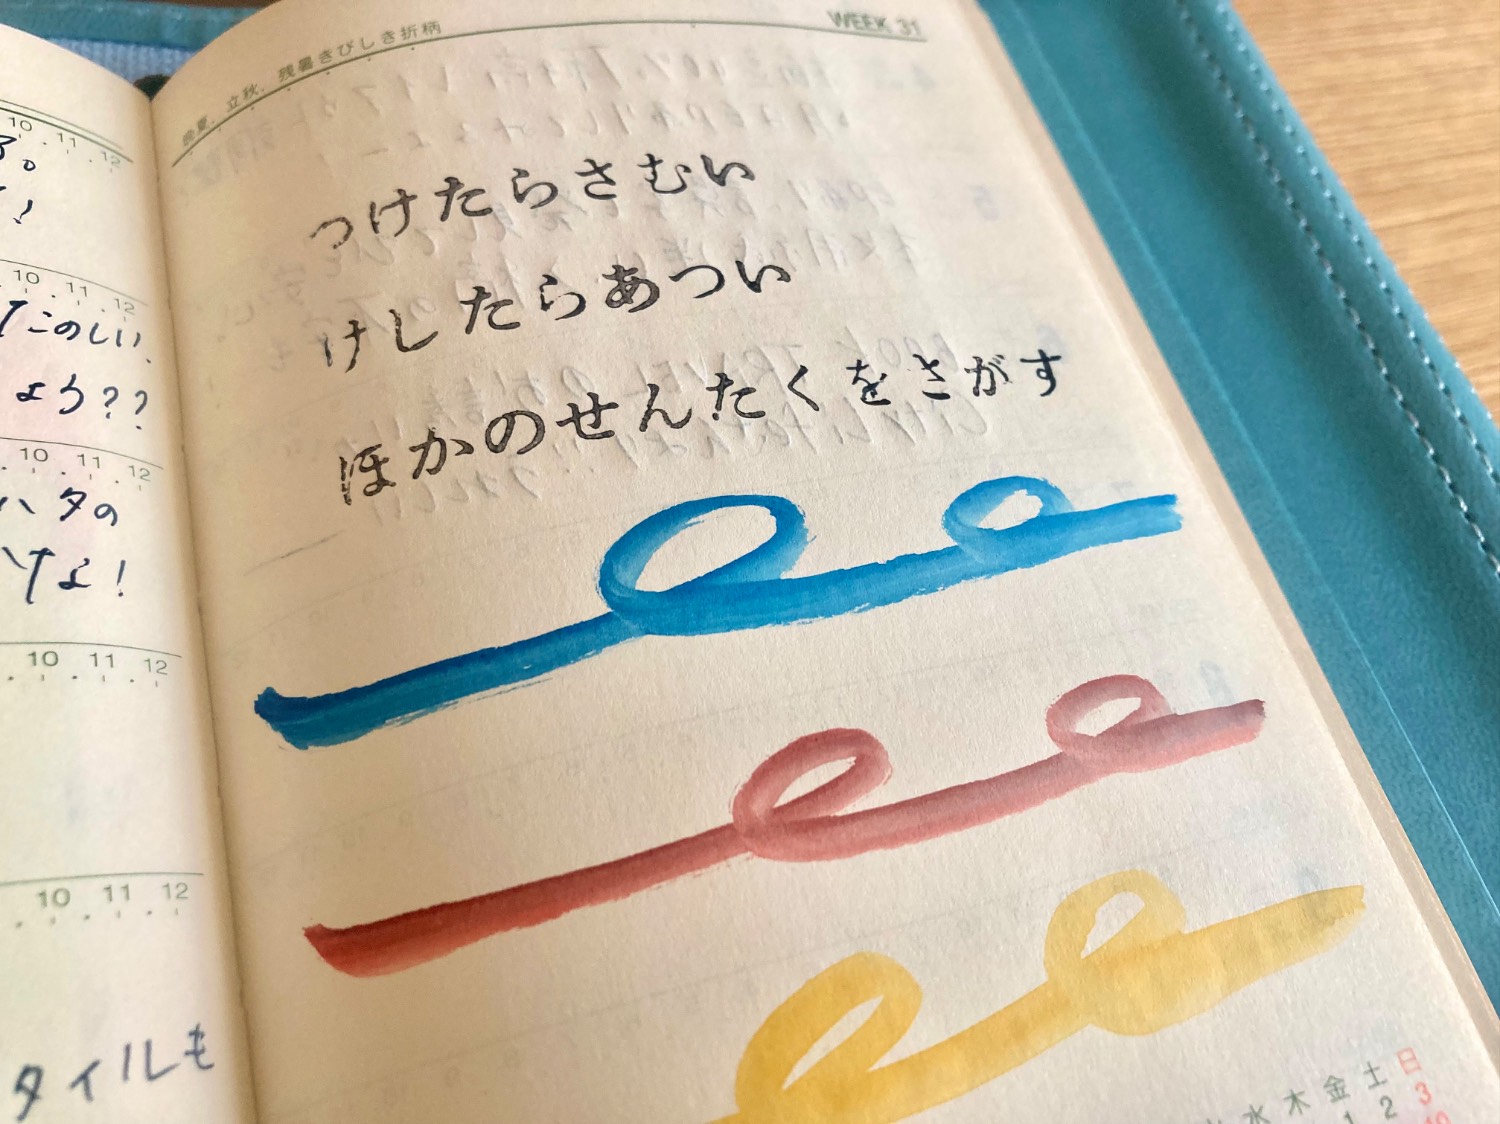 10 11 12
る。
!
10 11 12
てたのしい、
よう??
10 11 12
ハタの
けよ!
10 11 12
10 11 12
タイルも
晩夏、立秋、残暑きびしき折柄
WEEK 31
つけたらさむい
けしたらあつい
ほかのせんたくをさがす
水 木 金 土 日
1 2 3